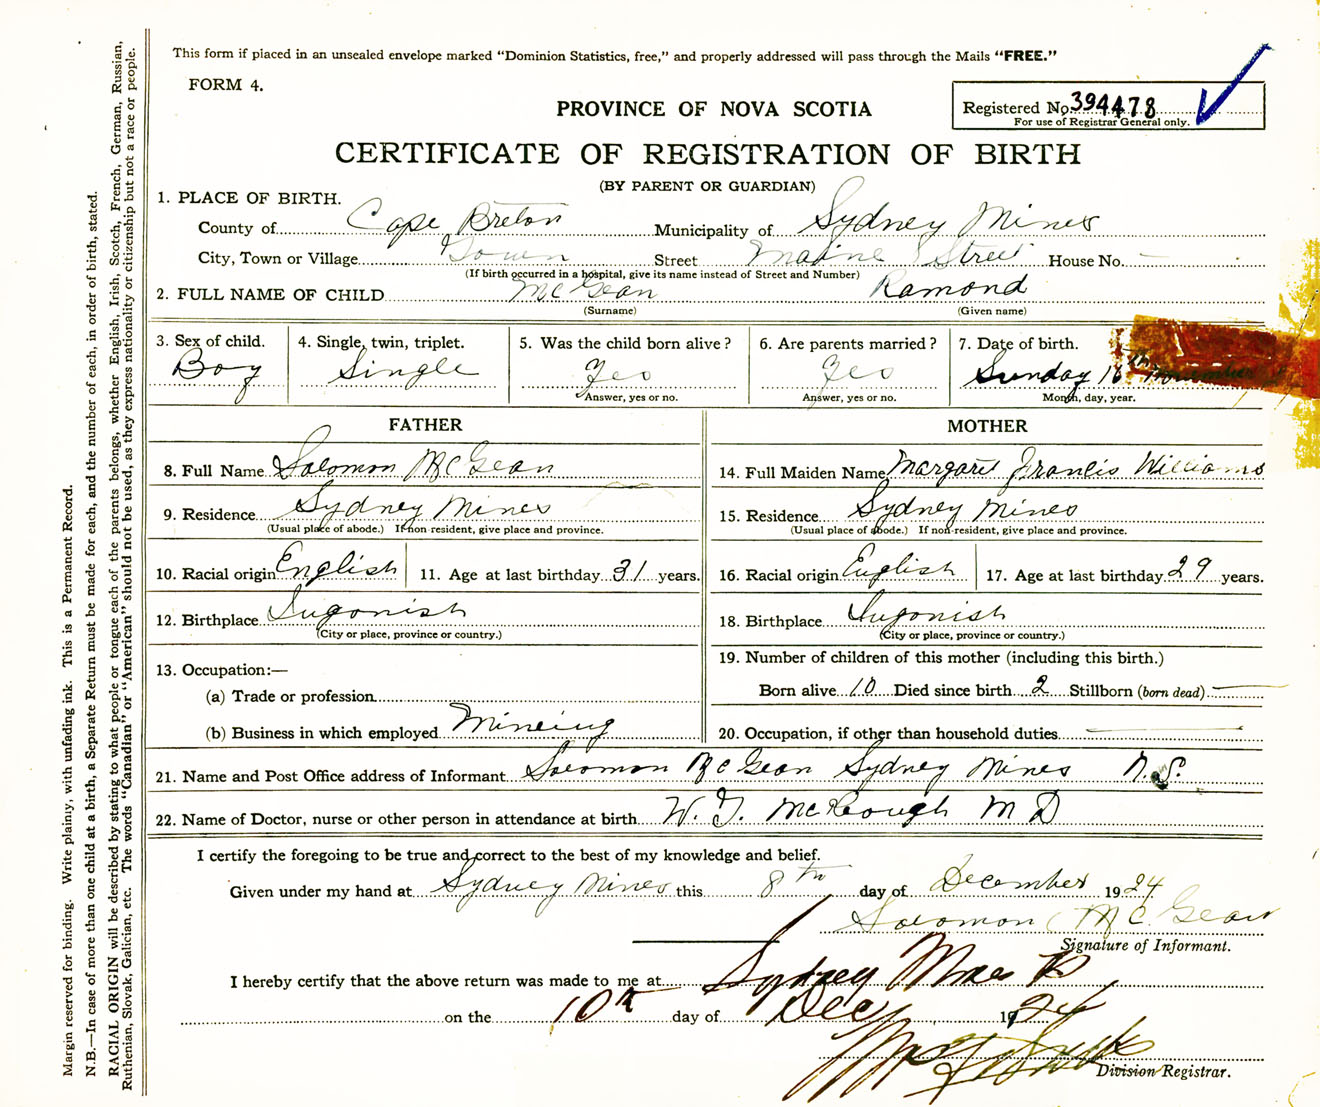 This form if placed in an unsealed envelope marked "Dominion Statistics, free," and properly addressed will pass through the Mails "FREE."
FORM 4.
Registered No. 394478
For use of Registrar General only.
PROVINCE OF NOVA SCOTIA
CERTIFICATE OF REGISTRATION OF BIRTH
(BY PARENT OR GUARDIAN)
1. PLACE OF BIRTH.
County of Cape Breton Municipality of Sydney Mines
City, Town or Village Town Street Street House No. —
(If birth occurred in a hospital, give its name instead of Street and Number)
2. FULL NAME OF CHILD McGean Ramond
(Surname) (Given name)
3. Sex of child. 4. Single, twin, triplet. 5. Was the child born alive? 6. Are parents married? 7. Date of birth.
Boy Single Yes Yes Sunday 16th November
Answer, yes or no. Answer, yes or no. Month, day, year.
FATHER MOTHER
8. Full Name Solomon McGean
14. Full Maiden Name Margaret Francis Williams
9. Residence Sydney Mines
(Usual place of abode.) If non-resident, give place and province.
15. Residence Sydney Mines
(Usual place of abode.) If non-resident, give place and province.
10. Racial origin English 11. Age at last birthday 31 years.
16. Racial origin English 17. Age at last birthday 29 years.
12. Birthplace Ingonish
(City or place, province or country.)
18. Birthplace Ingonish
(City or place, province or country.)
13. Occupation:—
(a) Trade or profession
(b) Business in which employed Mineing
19. Number of children of this mother (including this birth.)
Born alive 10 Died since birth 2 Stillborn (born dead) —
20. Occupation, if other than household duties —
21. Name and Post Office address of Informant Solomon McGean Sydney Mines N.S.
22. Name of Doctor, nurse or other person in attendance at birth W. J. McKeough M D
I certify the foregoing to be true and correct to the best of my knowledge and belief.
Given under my hand at Sydney Mines this 8th day of December 1924
Solomon McGean
Signature of Informant.
I hereby certify that the above return was made to me at Sydney Mines
on the 10th day of Dec 1924
Division Registrar.
Margin reserved for binding. Write plainly, with unfading ink. This is a Permanent Record.
N.B.—In case of more than one child at a birth, a Separate Return must be made for each, and the number of each, in order of birth, stated.
RACIAL ORIGIN will be described by stating to what people or tongue each of the parents belongs, whether English, Irish, Scotch, French, German, Russian,
Ruthenian, Slovak, Galician, etc. The words "Canadian" or "American" should not be used, as they express nationality or citizenship but not a race or people.